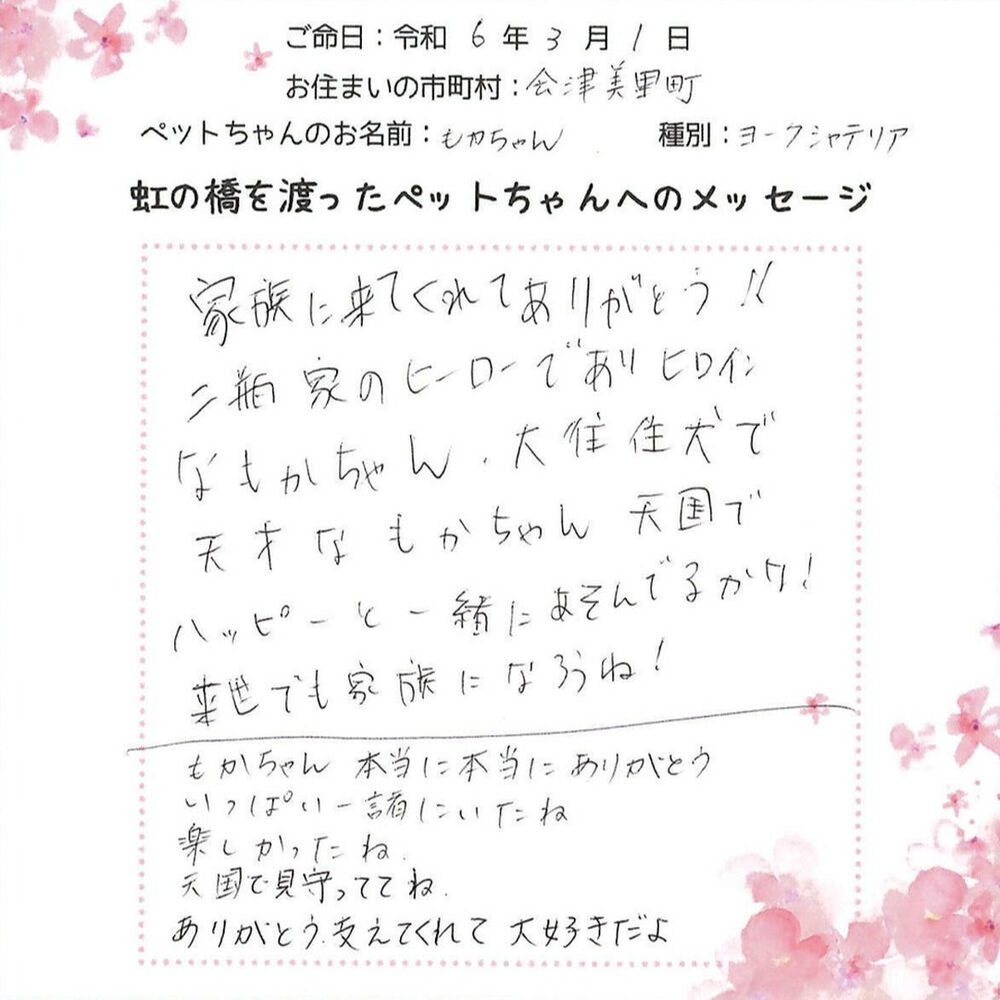 ご命日：令和 6 年 3 月 1 日
お住まいの市町村：会津美里町
ペットちゃんのお名前：もかちゃん　種別：ヨークシャテリア
虹の橋を渡ったペットちゃんへのメッセージ
家族に来てくれてありがとう!!
二瓶家のヒーローでありヒロイン
なもかちゃん、大往住犬で
天才なもかちゃん 天国で
ハッピーと一緒にあそんでるかな!
来世でも家族になろうね!
もかちゃん 本当に本当にありがとう
いっぱい一諸にいたね
楽しかったね.
天国で見守っててね.
ありがとう.支えてくれて 大好きだよ